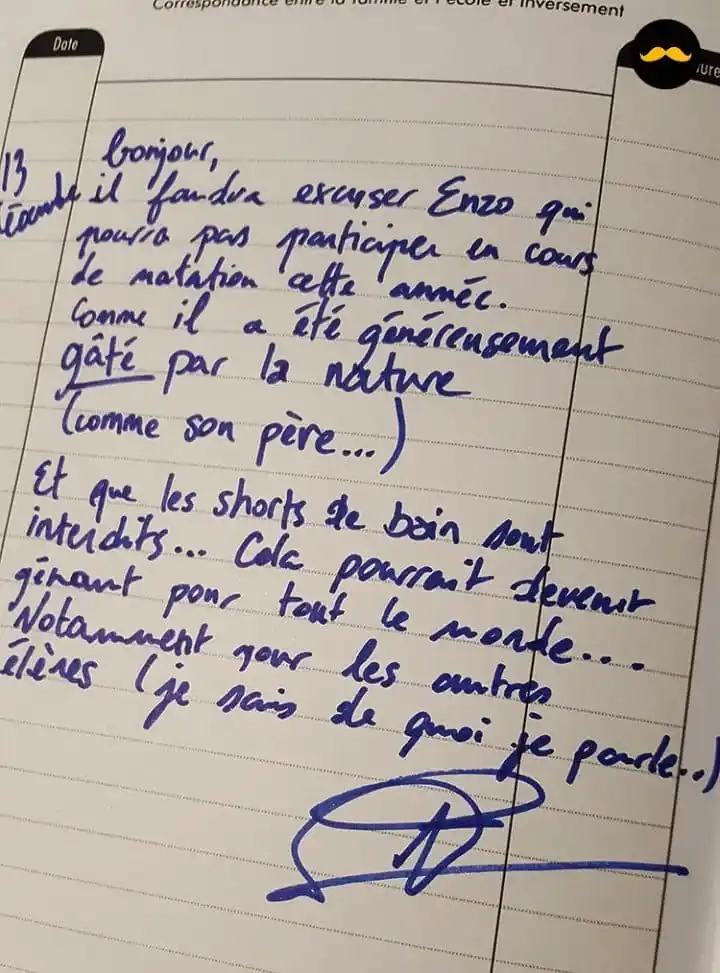 Correspondance entre la famille et l'école et inversement
Date
13
bonjour,
il faudra excuser Enzo qui
pourra pas participer en cours
de natation cette année.
Comme il a été généreusement
gâté par la nature
(comme son père...)
Et que les shorts de bain sont
interdits... Cela pourrait devenir
gênant pour tout le monde...
Notamment pour les autres
élèves (je sais de quoi je parle..)